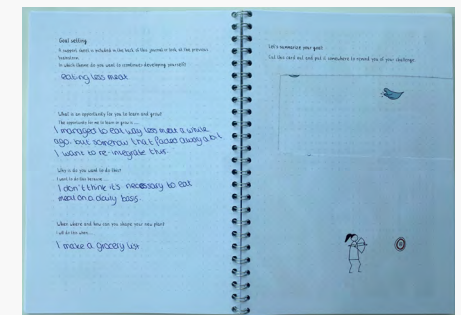 Goal setting
A support sheet is included in the back of this journal or look at the previous
brainstorm.
In which theme do you want to continue developing yourself?
eating less meat
What is an opportunity for you to learn and grow?
The opportunity for me to learn or grow is ...
I managed to eat way less meat a while
ago, but somehow that faded away a bit
I want to re-integrate this.
Why is do you want to do this?
I want to do this because ...
I don't think it's necessary to eat
meat on a daily basis.
When where and how can you shape your new plan?
I will do this when...
I make a grocery list
Let's summarize your goal!
Cut this card out and put it somewhere to remind you of your challenge.